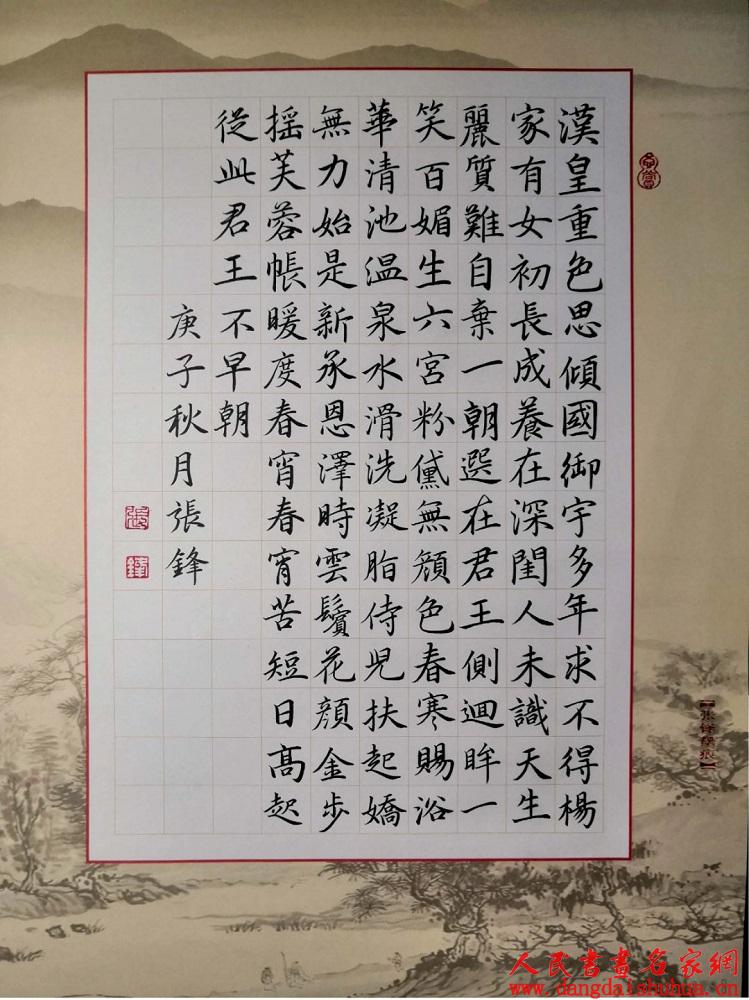 漢皇重色思傾國御宇多年求不得楊
家有女初長成養在深閨人未識天生
麗質難自棄一朝選在君王側迴眸一
笑百媚生六宮粉黛無顔色春寒賜浴
華清池温泉水滑洗凝脂侍兒扶起嬌
無力始是新承恩澤時雲鬢花顔金步
摇芙蓉帳暖度春宵春宵苦短日髙起
從此君王不早朝
庚子秋月張鋒
張
鋒
人民書畫名家網
www.dangdaishuhua.cn